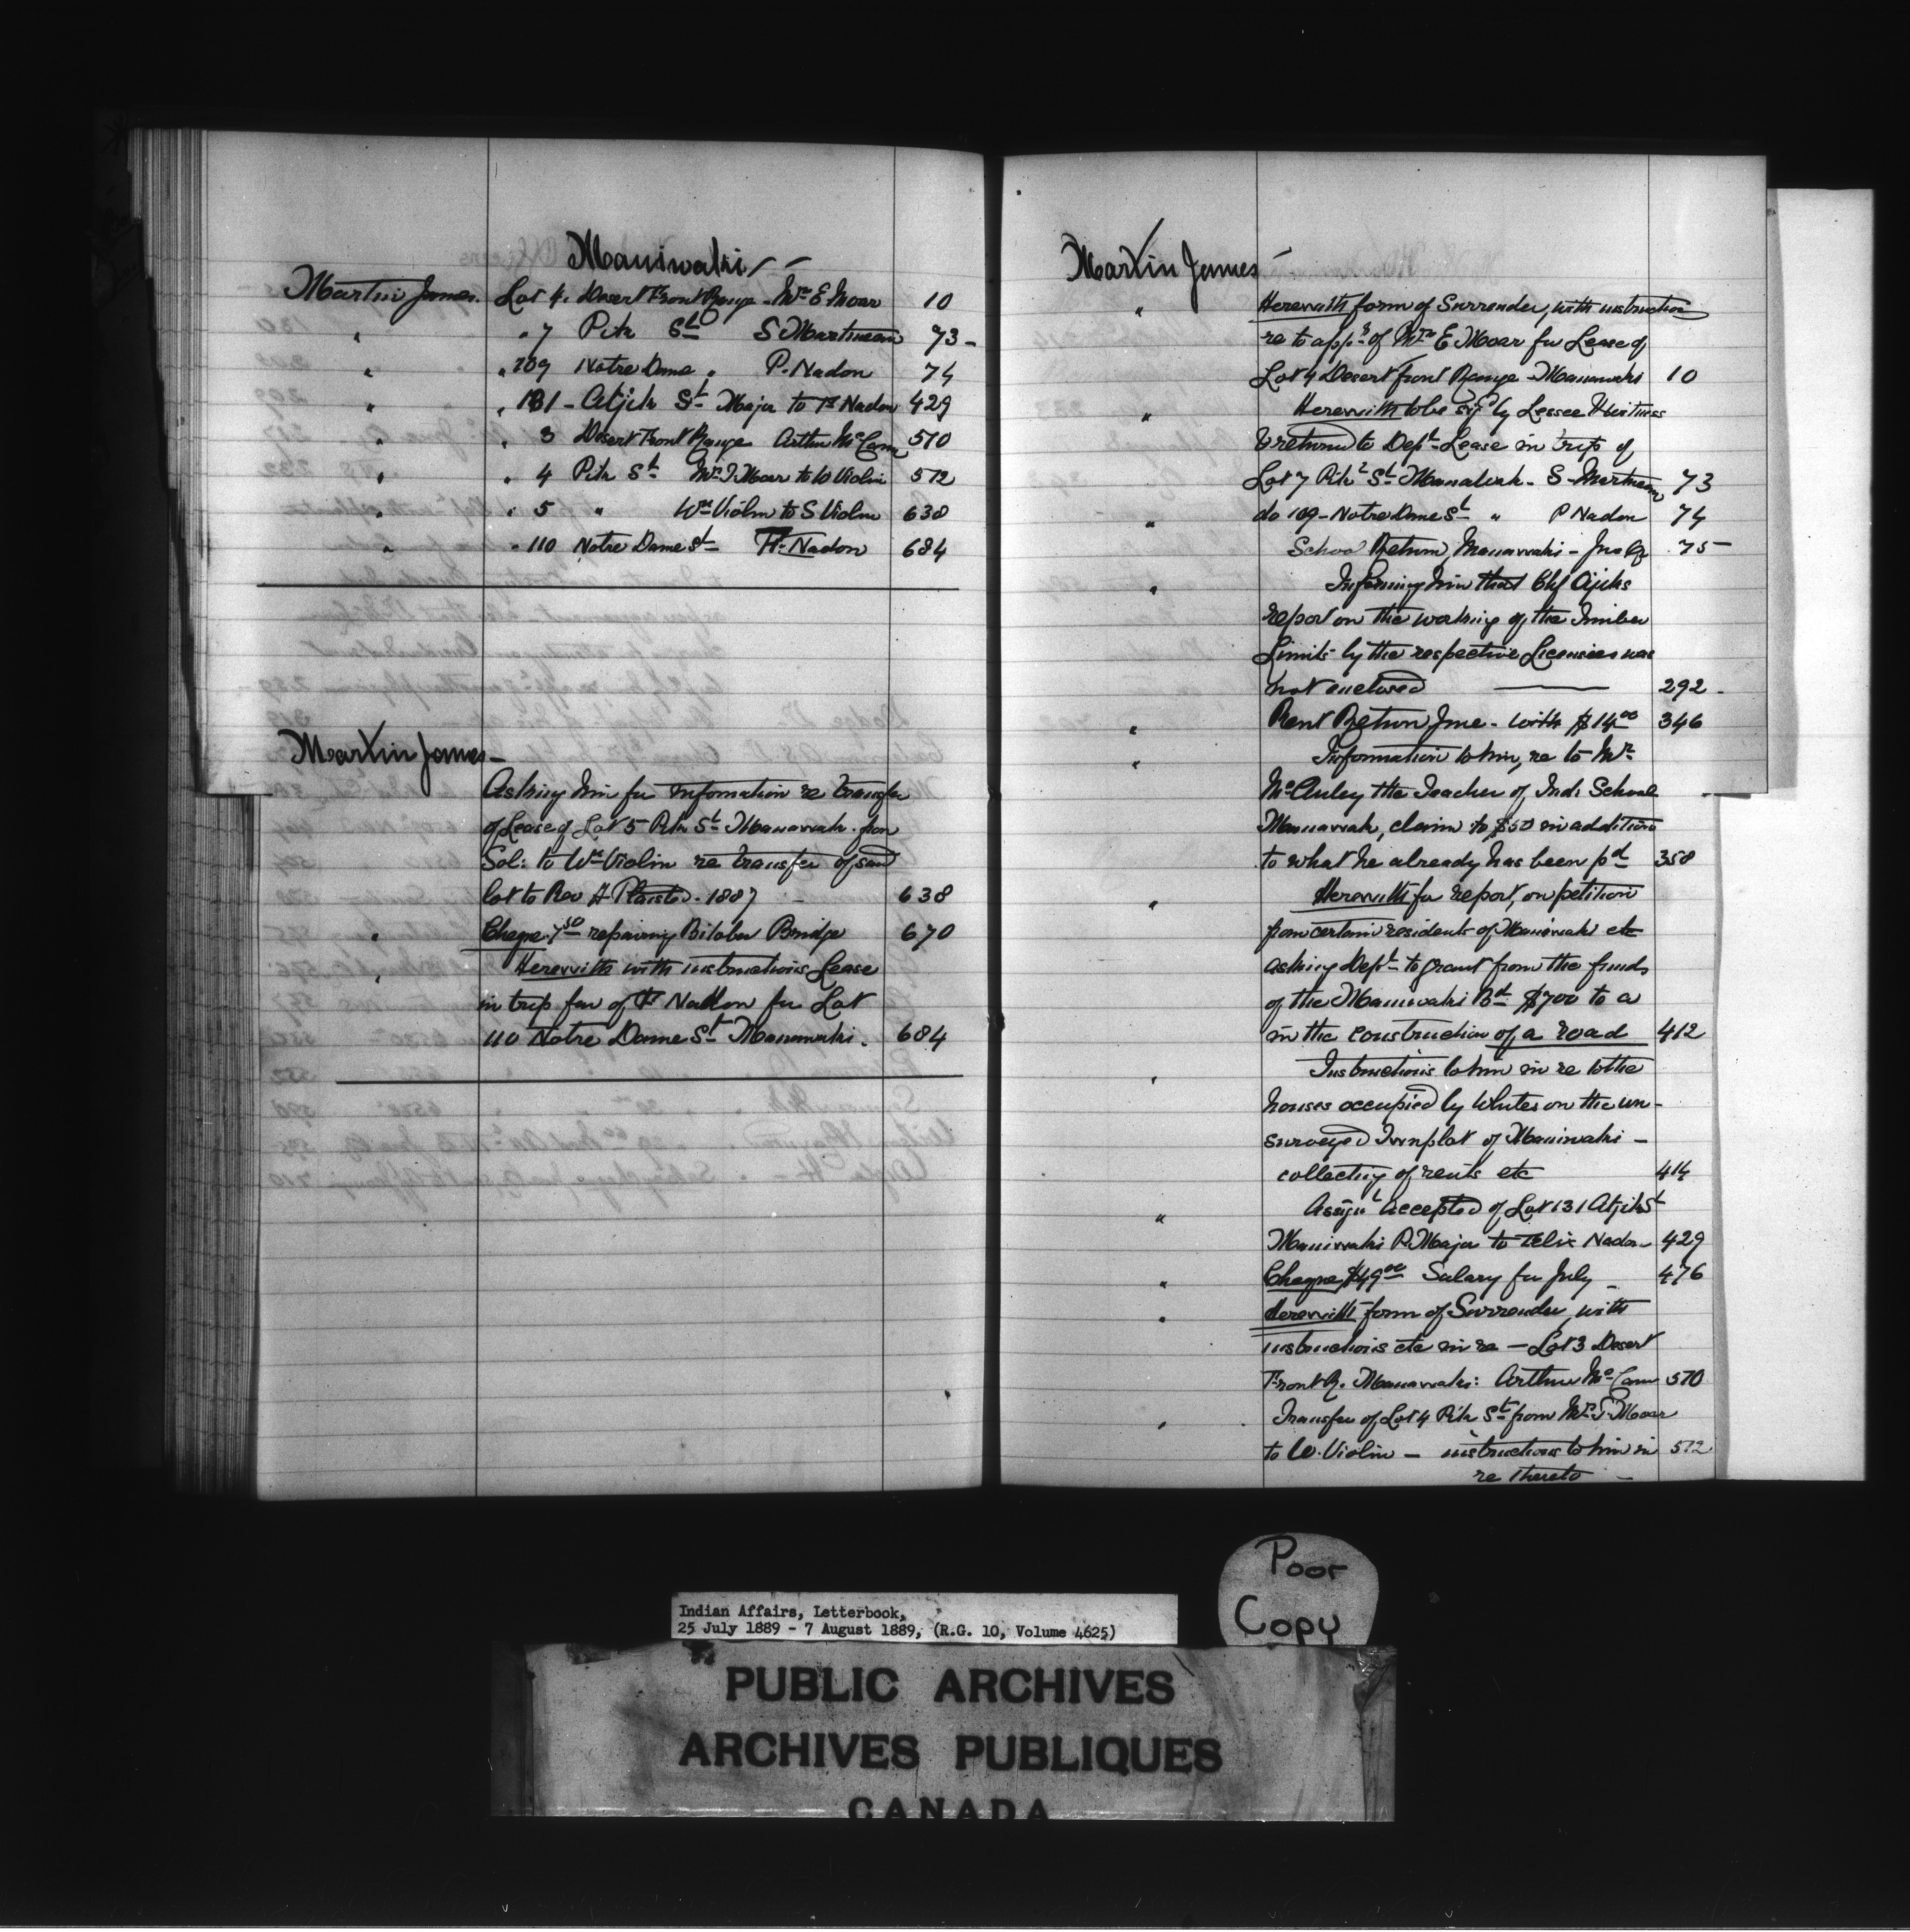 Maniwaki
Martin James. Lot 4. Desert Front Range - Mrs E Moar 10
" " 7 Pitu St S Martineau 73 -
" " 109 Notre Dame " P. Nadon 74
" " 131 - Atjik St Major to F Nadon 429
" " 3 Desert Front Range Arthur McCann 570
" " 4 Pitu St Mrs J. Moar to W Violin 572
" " 5 " Wm Violin to S Violin 638
" " 110 Notre Dame St F. Nadon 684
Martin James -
Asking him for infomation re transfer
of Lease of Lot 5 Pitu St Manawaki from
Sol: to Wm Violin re transfer of said
lot to Rev A 1887 - 638
" Cheque 7.50 repairing Bitobee Bridge 670
" Herewith with instructions Lease
in trip fav of F Nadon for Lot
110 Notre Dame St Manawaki. 684
Martin James
" Herewith form of Surrender, with instruction
re to appn of Mrs E Moar for Lease of
Lot 4 Desert front Range - Manawaki 10
" Herewith to be sigd by Lessee & Witness
& returned to Dept Lease in trip of
Lot 7 Pitu St Manawaki - S Martineau 73
" do 109 - Notre Dame St " P Nadon 74
School Return, Manawaki - June Qr 75
" Informing him that Chf Ajiks
report on the working of the Timber
Limits by the respective Licensees was
not enclosed 292 -
" Rent Return June - with $14.00 346
" Information to him, re to Mr
McAuley the Teacher of Ind: School
Manawaki, claim to $50 in addition
to what he already has been pd 358
" Herewith for report, on petition
from certain residents of Maniwaki etc
asking Dept to grant from the funds
of the Maniwaki Bd $700 to a
in the construction of a road 412
" Instructions to him in re to the
houses occupied by Whites on the un-
surveyed Townplot of Maniwaki -
collecting of rents etc 414
" Assignt accepted of Lot 131 Atjik St
Maniwaki P. Major to Felix Nadon 429
" Cheque $49.00 Salary for July - 476
" Herewith form of Surrender, with
instructions etc in re - Lot 3 Desert
Front R. Manawaki: Arthur McCann 570
" Transfer of Lot 4 Pitu St from Mrs J. Moar
to W. Violin - instructions to him in 572
re thereto -
Poor
Copy
Indian Affairs, Letterbook,
25 July 1889 - 7 August 1889, (R.G. 10, Volume 4625)
PUBLIC ARCHIVES
ARCHIVES PUBLIQUES
CANADA